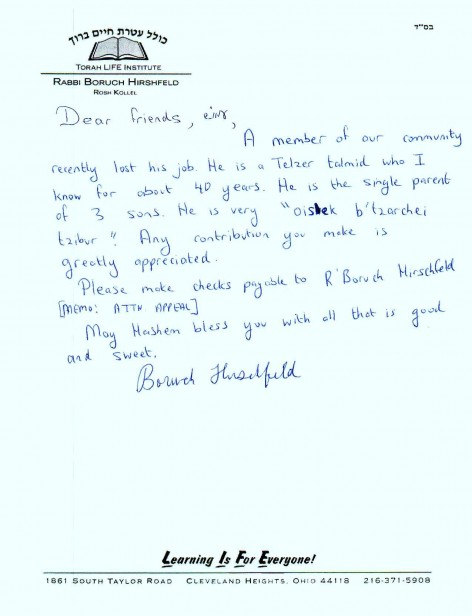 בס"ד
כולל עטרת חיים ברוך
TORAH LIFE INSTITUTE
RABBI BORUCH HIRSHFELD
ROSH KOLLEL
Dear friends, עמו"ש,
A member of our community
recently lost his job. He is a Telzer talmid who I
know for about 40 years. He is the single parent
of 3 sons. He is very "oisek b'tzarchei
tzibur". Any contribution you make is
greatly appreciated.
Please make checks payable to R' Boruch Hirschfeld
[MEMO: ATTN APPEAL]
May Hashem bless you with all that is good
and sweet.
Boruch Hirschfeld
Learning Is For Everyone!
1861 SOUTH TAYLOR ROAD CLEVELAND HEIGHTS, OHIO 44118 216-371-5908